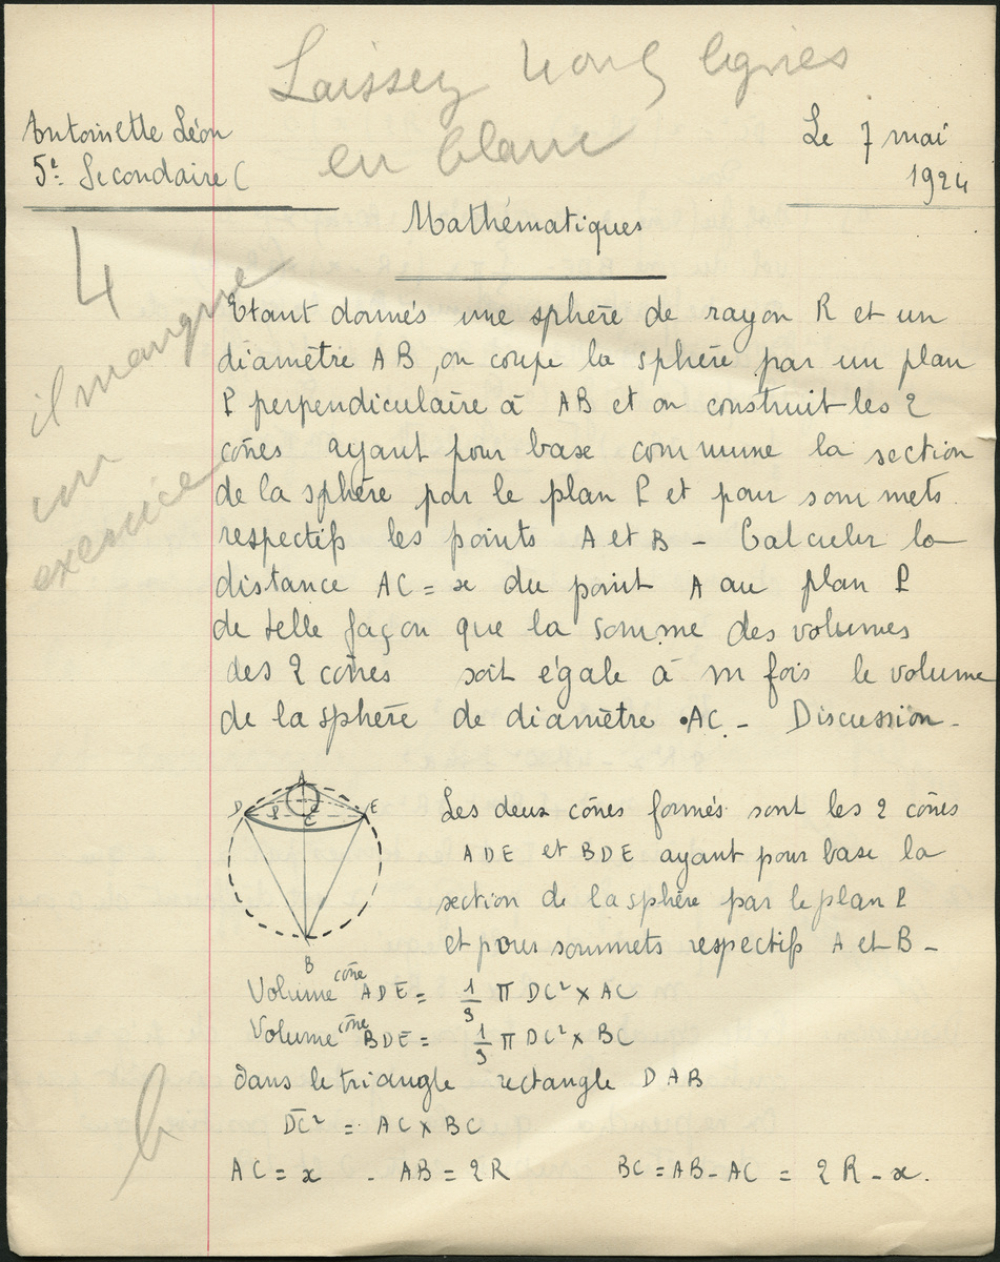 Laissez trois lignes
en blanc
Antoinette Léon
5e Secondaire C
Le 7 mai
1924
Mathématiques
4
il manque
un
exercice
Etant donnés une sphère de rayon R et un
diamètre AB, on coupe la sphère par un plan
P perpendiculaire à AB et on construit les 2
cônes ayant pour base commune la section
de la sphère par le plan P et pour sommets
respectifs les points A et B - Calculer la
distance AC = x du point A au plan P
de telle façon que la somme des volumes
des 2 cônes soit égale à m fois le volume
de la sphère de diamètre AC - Discussion -
A
D P C E
B
Les deux cônes formés sont les 2 cônes
ADE et BDE ayant pour base la
section de la sphère par le plan P
et pour sommets respectifs A et B -
Volume cône ADE = 1/3 π DC² x AC
Volume cône BDE = 1/3 π DC² x BC
dans le triangle rectangle DAB
DC² = AC x BC
AC = x - AB = 2R BC = AB - AC = 2R - x.